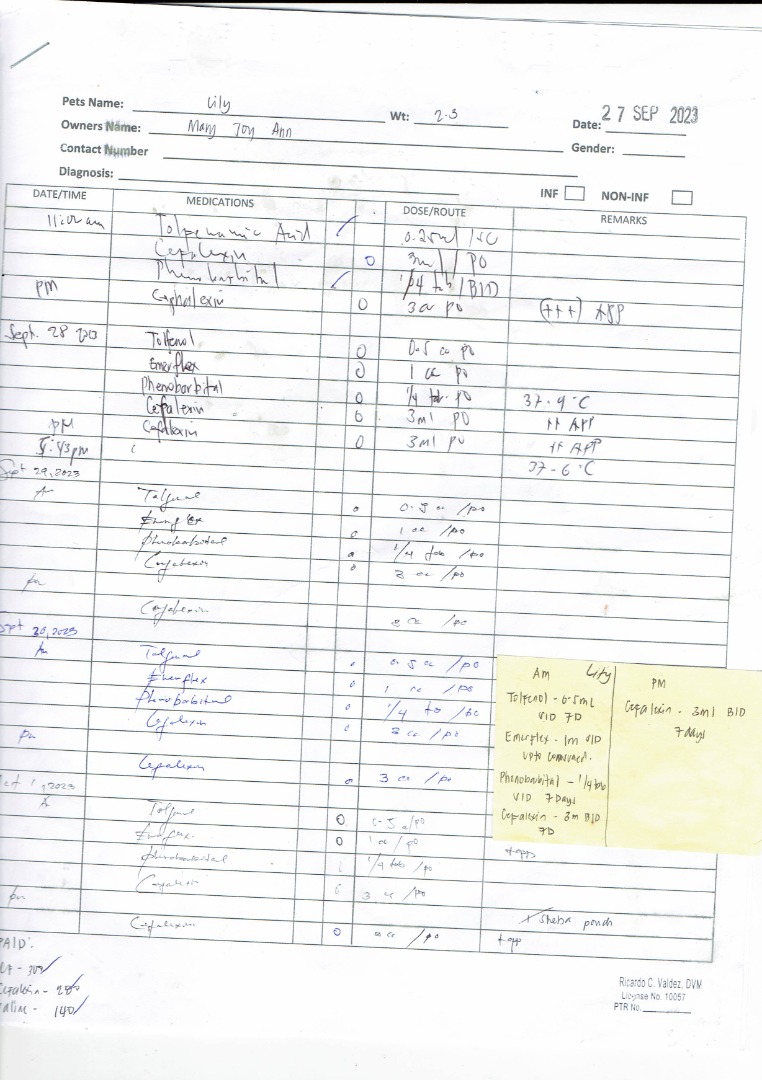 Pets Name: Lily Wt: 2.3 27 SEP 2023
Owners Name: Mary Joy Ann Date:
Contact Number Gender:
Diagnosis: INF NON-INF
DATE/TIME MEDICATIONS DOSE/ROUTE REMARKS
11:00 am Tolpenamic Acid 0.25ml / SC
Cefalexin 0 3ml / PO
Phenobarbital 1/4 tab / BID
PM Cephalexin 0 3 cc po (+++) APP
Sept. 28 Tolfenol 0 0.5 cc po
Emerflex 0 1 cc po
Phenoborbital 0 1/4 tab PO 37.9°C
Cefalexin 0 3ml PO ++ APP
PM Cefalexin 0 3ml PO ++ APP
5:43pm 37-6°C
Sept 29, 2023
Am 0 0.5 cc /po
0 1 cc /po
Phenobarbital 0 1/4 tab /po
0 3 cc /po
pm
3 cc /po
Sept 30, 2023
Am 0 0.5 cc /po
0 1 cc /po
Phenobarbital 0 1/4 tab /po
0 3 cc /po
pm
Cefalexin 0 3 cc /po
Oct 1, 2023
A 0 0.5 cc/po
0 1 cc /po
1/4 tab /po +app
3 cc /po
pm + Sheba pouch
Cefalexin 0 3 cc /po +app
Am Lily PM
Tolfenol - 0.5mL
VID 7D
Emerflex - 1m VID
upto consumed.
Phenobarbital - 1/4 tab
VID 7 Days
Cefalexin - 3m BID
7D
Cefalexin - 3ml BID
7days
PAID:
- 300
Cefalexin - 280
- 140
Ricardo C. Valdez, DVM
License No. 10057
PTR No.